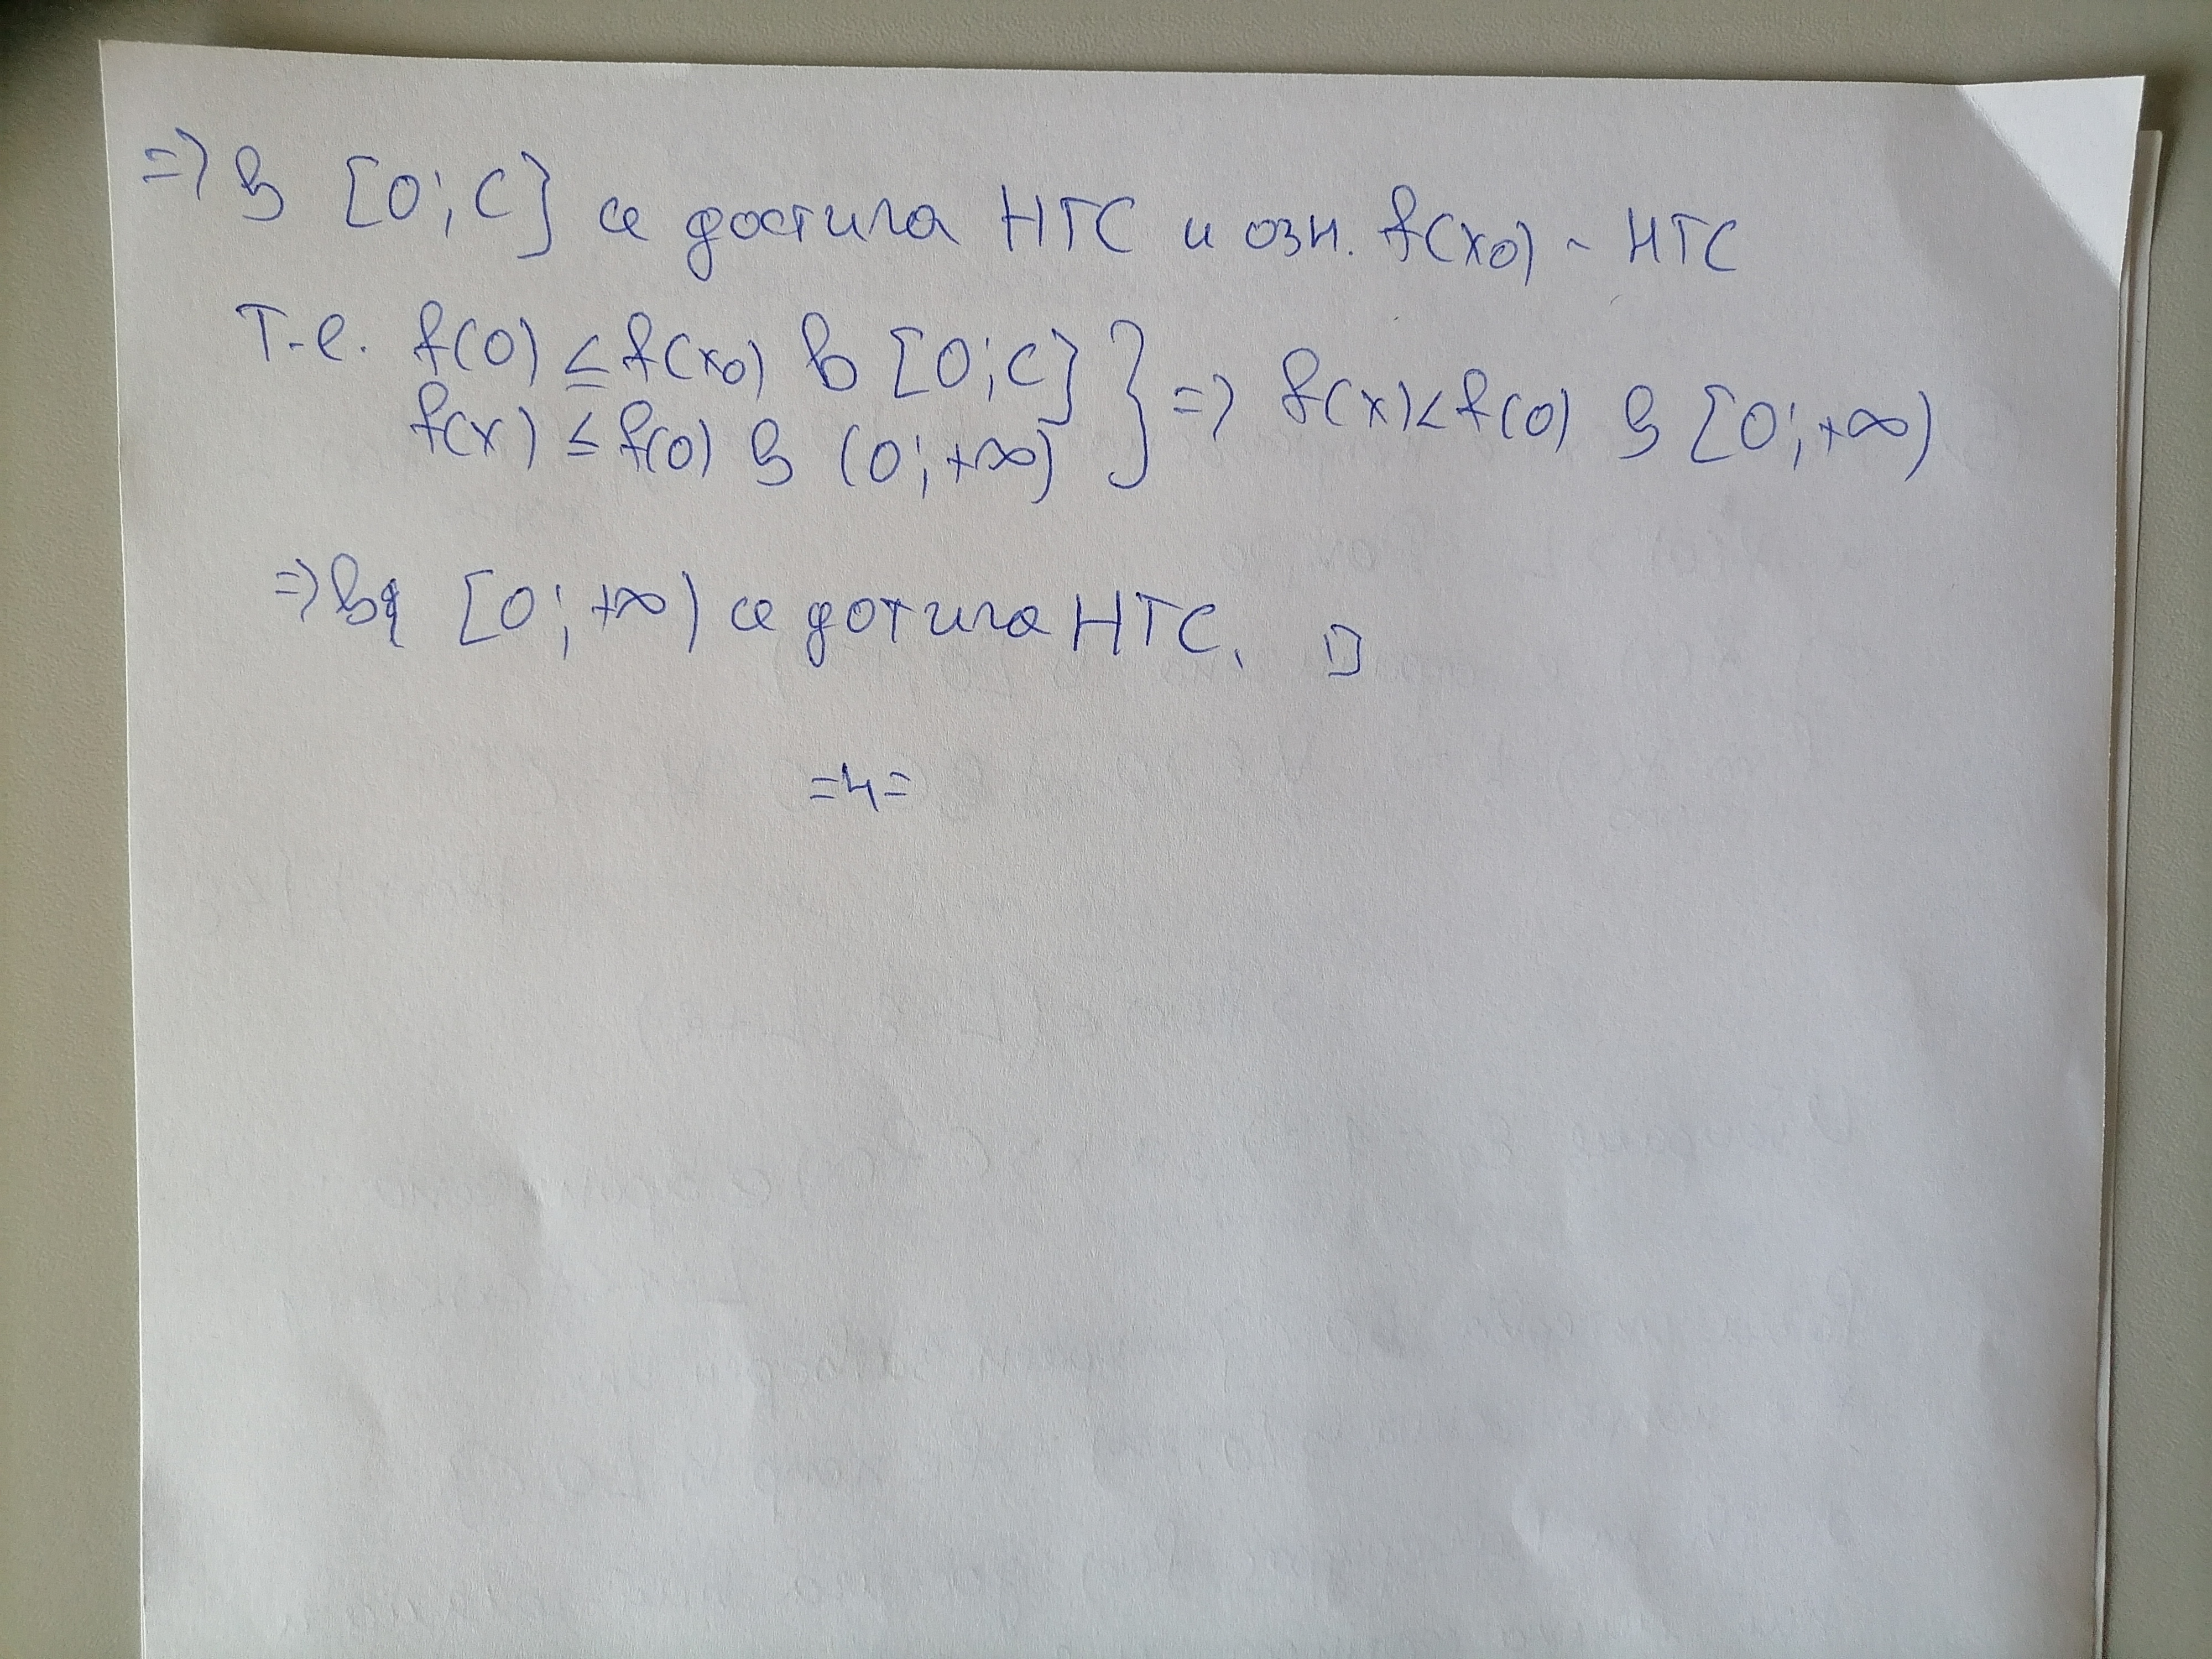 => В [0; C] се достига НГС и озн. f(x0) - НГС
т.е. f(0) ≤ f(x0) в [0; C] } => f(x) < f(0) в [0; +∞)
f(x) ≤ f(0) в (0; +∞)
=> в [0; +∞) се дотига НГС. □
=4=